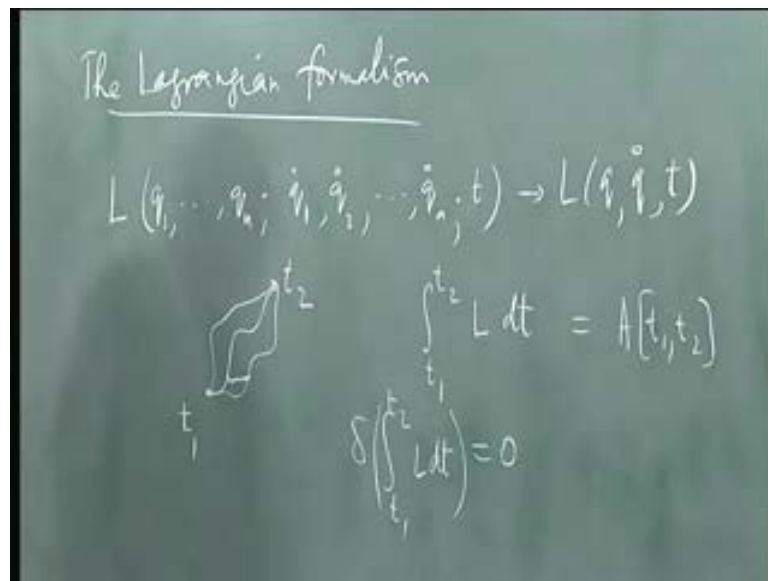 The Lagrangian formalism
L(q₁, ..., qₙ; q̇₁, q̇₂, ..., q̇ₙ; t) → L(q, q̇, t)
t₂
∫_{t₁}^{t₂} L dt = A[t₁, t₂]
t₁
δ(∫_{t₁}^{t₂} L dt) = 0